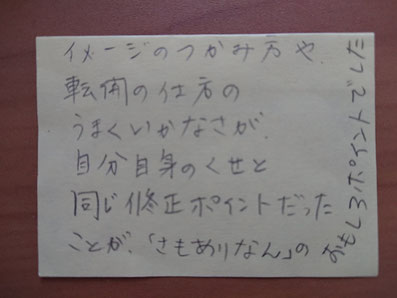 イメージのつかみ方や、
転開の仕方の
うまくいかなさが、
自分自身のくせと
同じ修正ポイントだった
ことが、「さもありなん」の
おもしろポイントでした